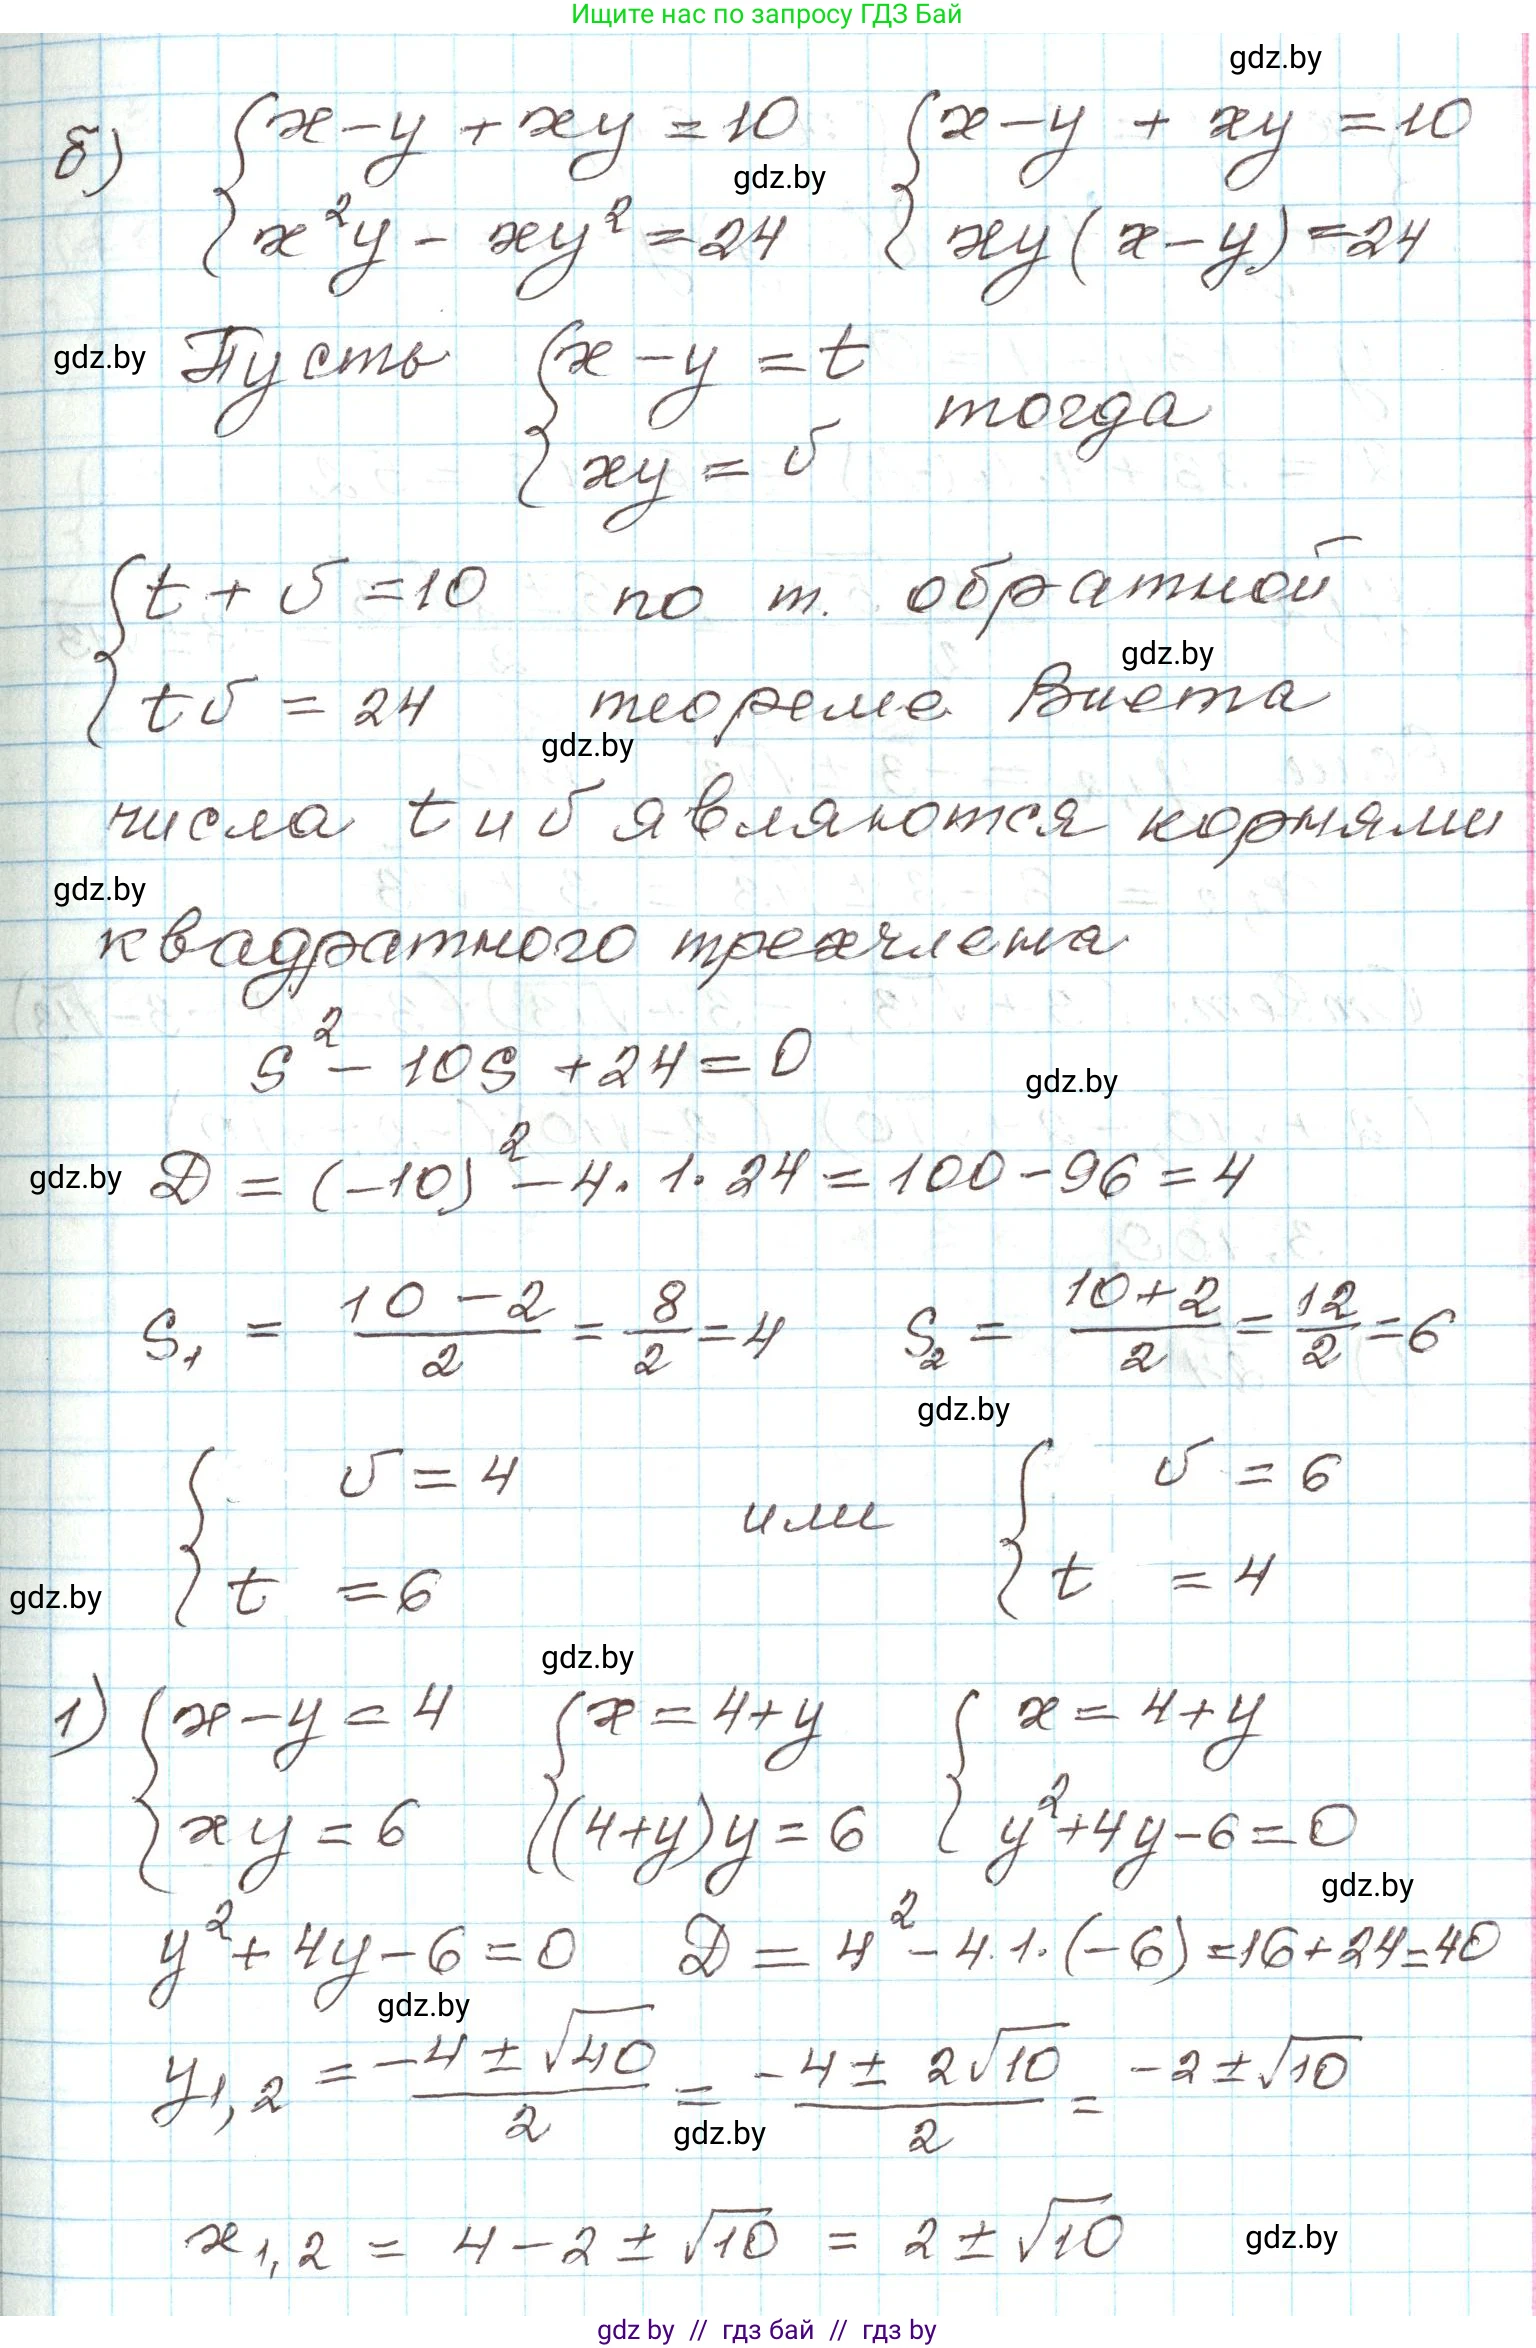 Ищите нас по запросу ГДЗ Бай
gdz.by
б) { x - y + xy = 10 { x - y + xy = 10
gdz.by
x²y - xy² = 24 xy(x - y) = 24
gdz.by Пусть { x - y = t
xy = б тогда
{ t + б = 10 по т. обратной
gdz.by
tб = 24 теореме Виета
gdz.by
числа t и б являются корнями
gdz.by
квадратного трехчлена
S² - 10S + 24 = 0
gdz.by
gdz.by D = (-10)² - 4 · 1 · 24 = 100 - 96 = 4
S₁ = (10 - 2)/2 = 8/2 = 4 S₂ = (10 + 2)/2 = 12/2 = 6
gdz.by
{ б = 4 или { б = 6
t = 6 t = 4
gdz.by
gdz.by
1) { x - y = 4 { x = 4 + y { x = 4 + y
xy = 6 (4 + y)y = 6 y² + 4y - 6 = 0
gdz.by
y² + 4y - 6 = 0 D = 4² - 4 · 1 · (-6) = 16 + 24 = 40
gdz.by
y₁,₂ = (-4 ± √40)/2 = (-4 ± 2√10)/2 = -2 ± √10
gdz.by
x₁,₂ = 4 - 2 ± √10 = 2 ± √10 gdz.by
gdz by // гдз бай // гдз by